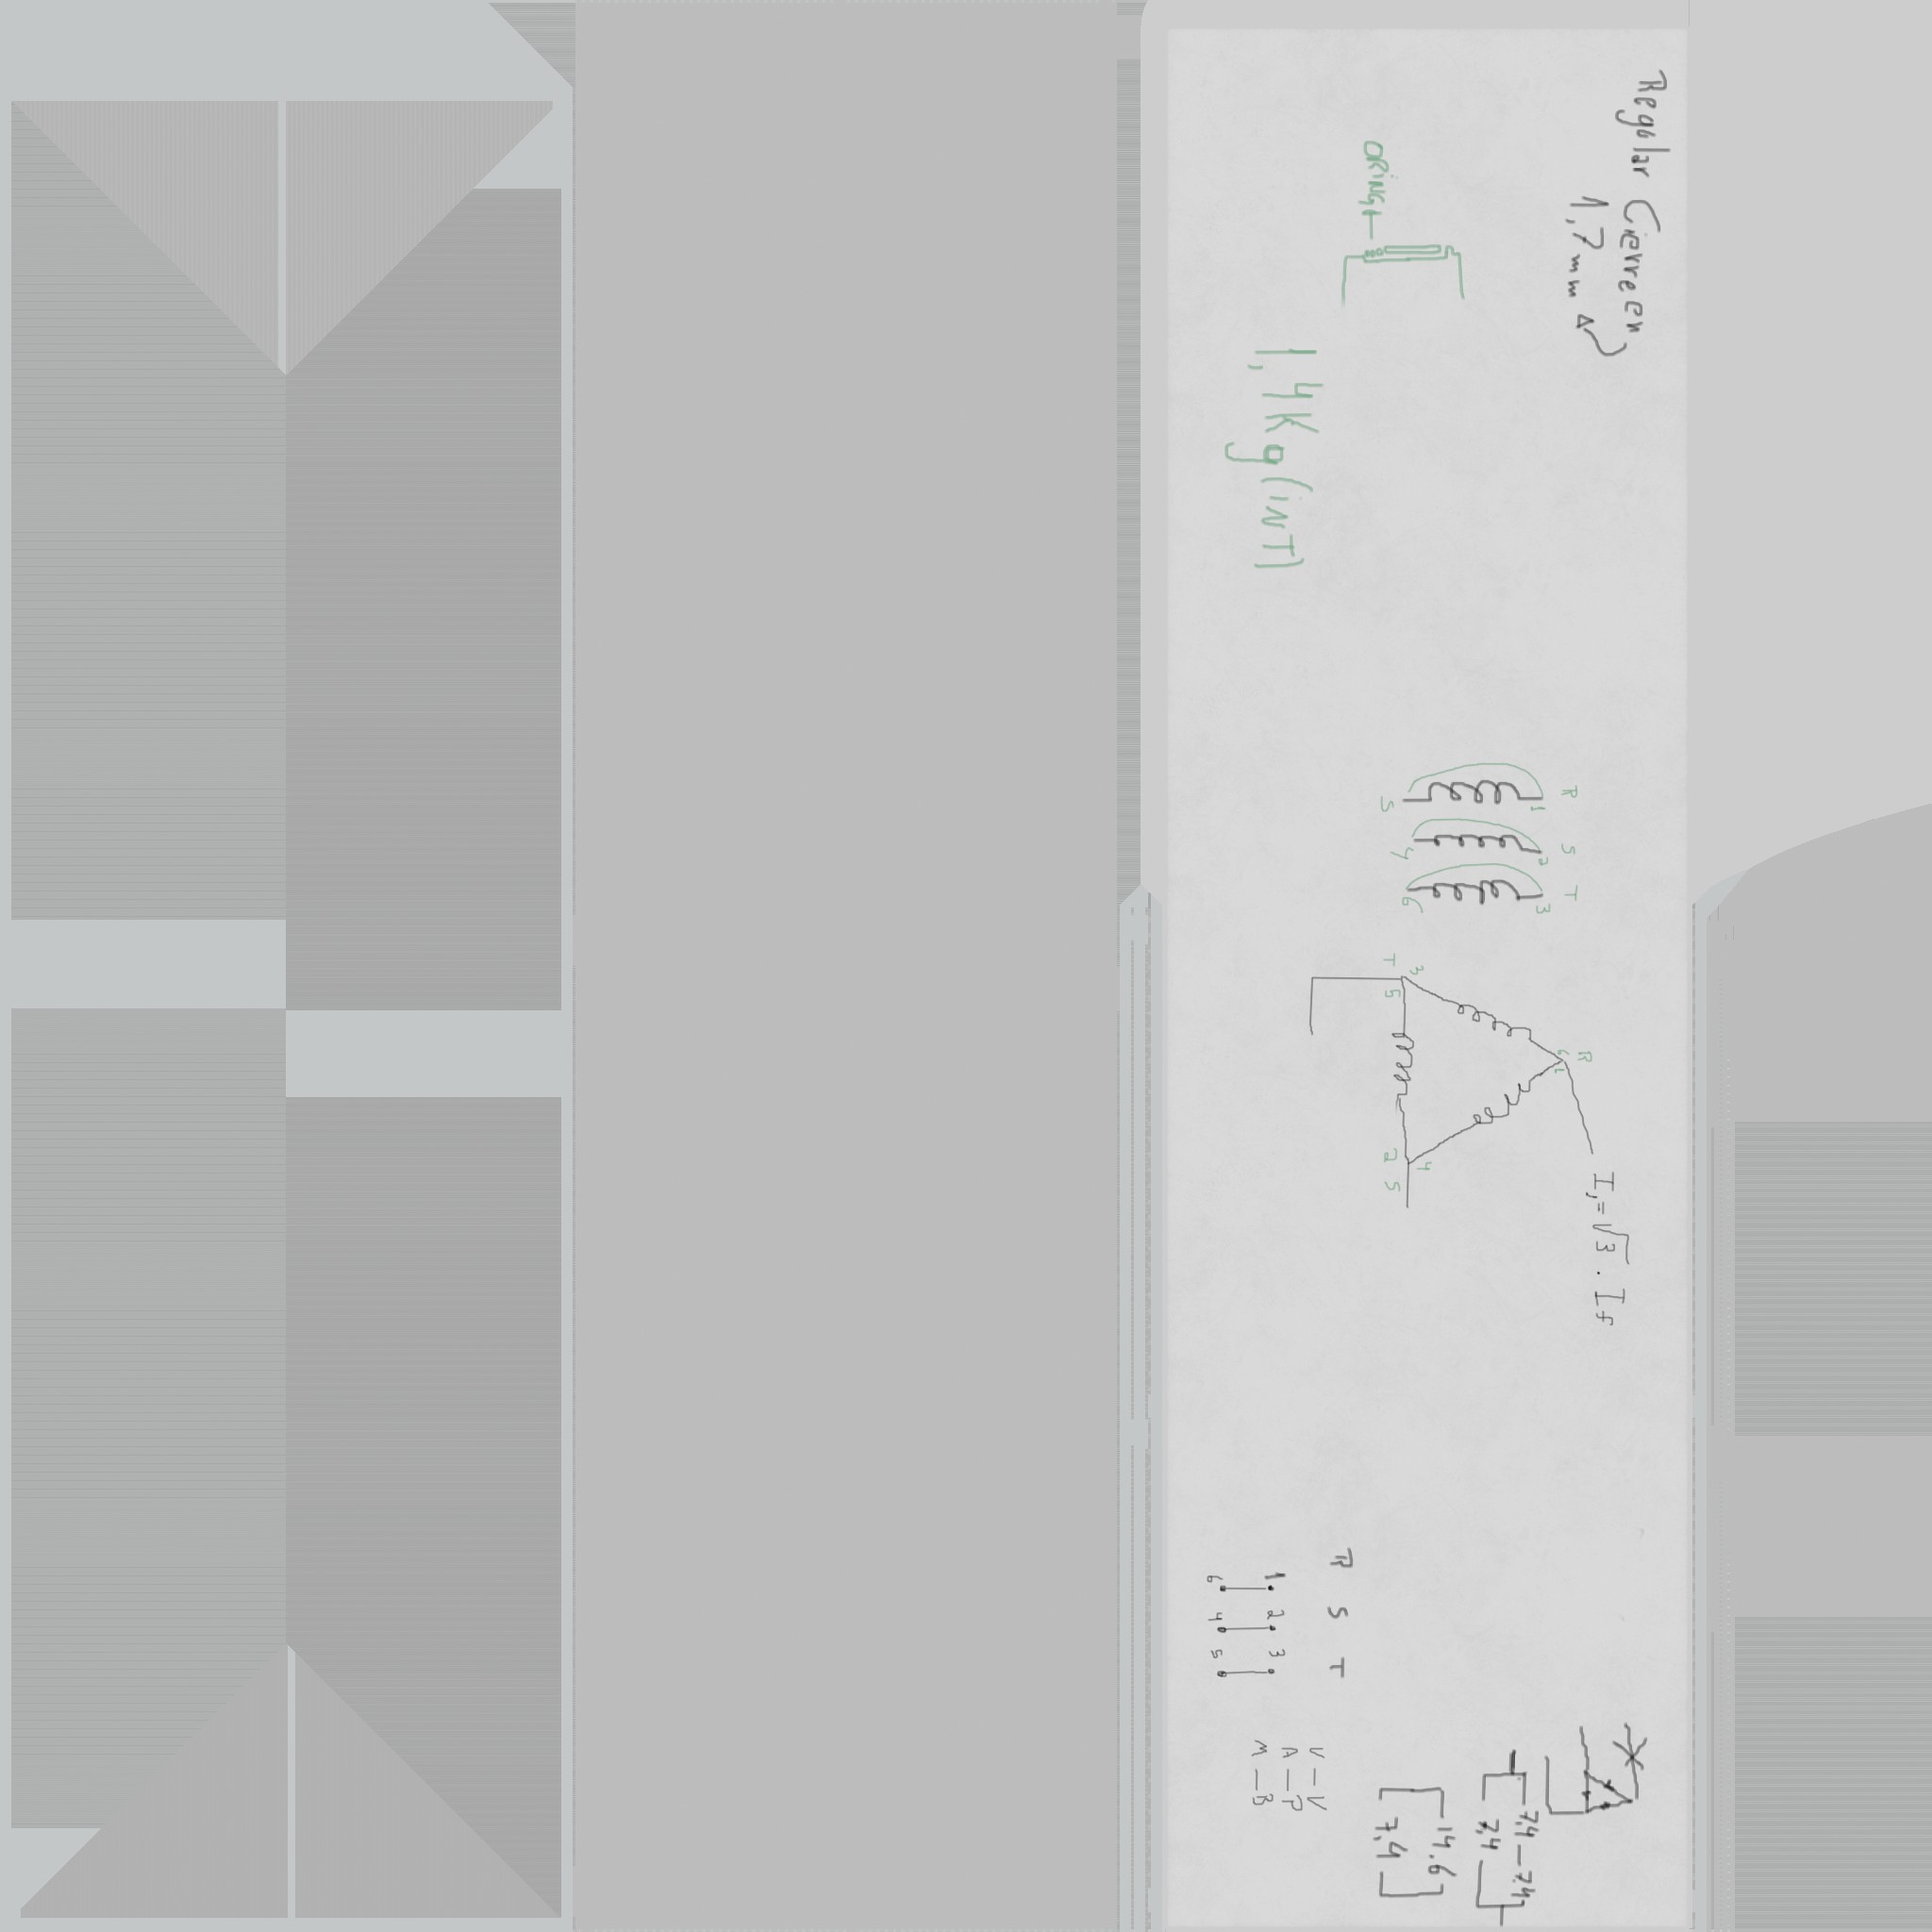 Regular Cierre en
1,7mm
ORING
1,4Kg(INT)
R S T
1 2 3
5 4 6
R
6 1
3 4
T 5 2 S
I₁=√3 . If
R S T
1 2 3
6 4 5
V — V
A — P
M — B
7,4 — 7,4
7,4
14.6
7,4